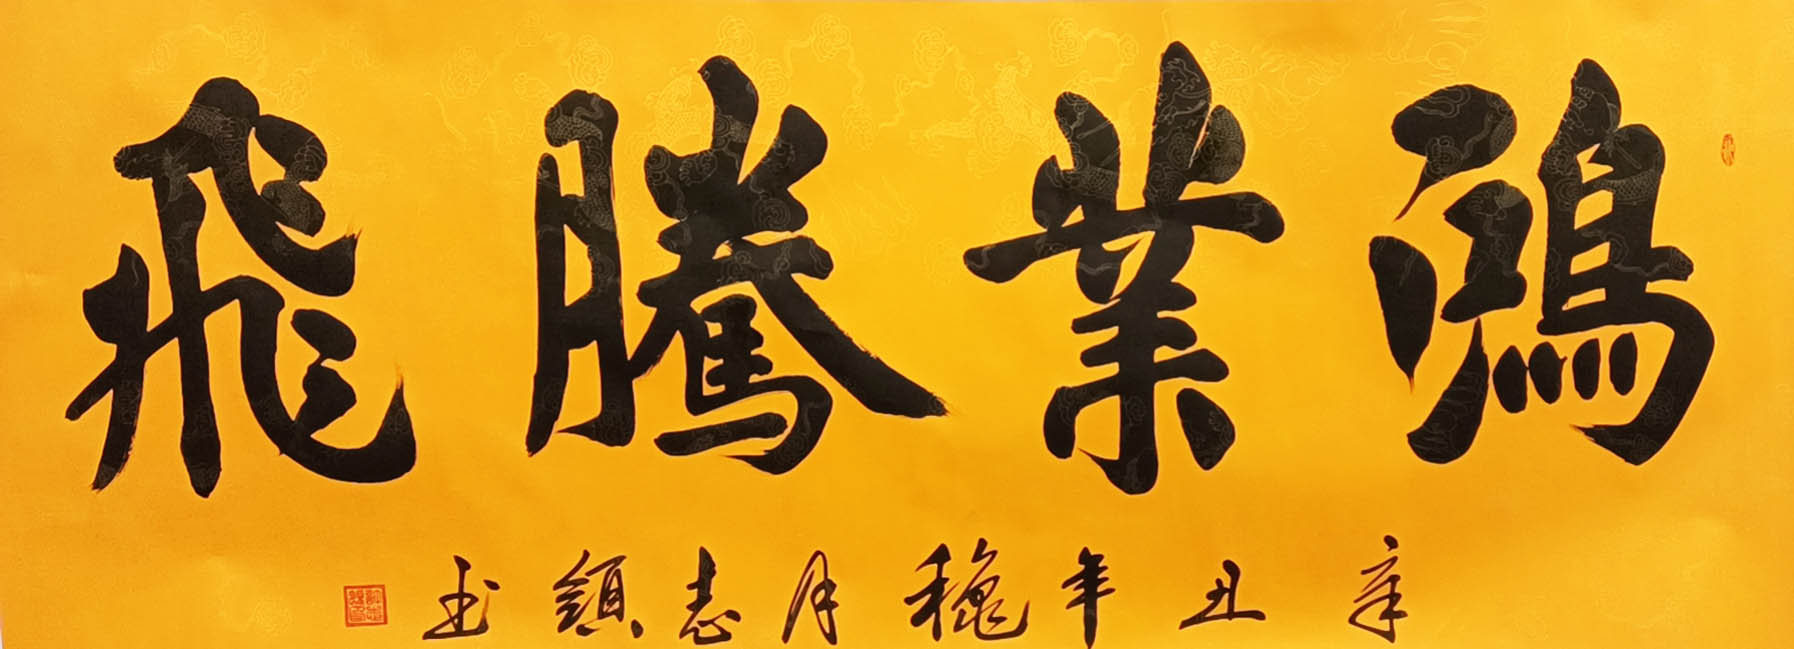 鴻業騰飛
辛丑年穐月志書